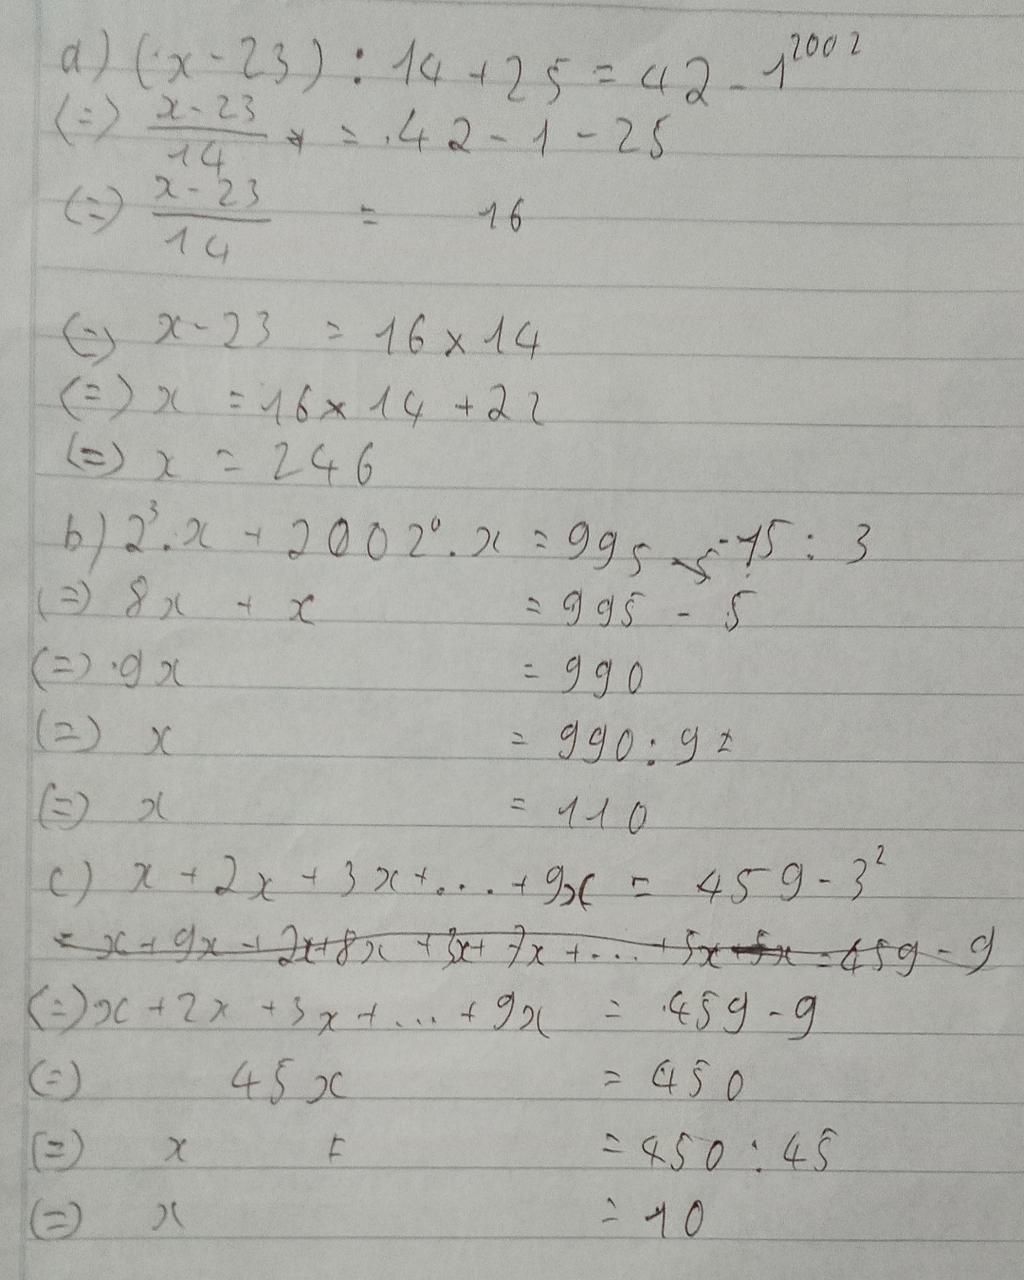 a) (x - 23) : 14 + 25 = 42 - 1²⁰⁰²
(=) \frac{x - 23}{14} = 42 - 1 - 25
(=) \frac{x - 23}{14} = 16
(=) x - 23 = 16 x 14
(=) x = 16 x 14 + 22
(=) x = 246
b) 2³.x + 2002⁰.x = 995 - 15 : 3
(=) 8x + x = 995 - 5
(=) 9x = 990
(=) x = 990 : 9
(=) x = 110
c) x + 2x + 3x + ... + 9x = 459 - 3²
= x + 9x + 2x + 8x + 3x + 7x + ... + 5x = 459 - 9
(=) x + 2x + 3x + ... + 9x = 459 - 9
(=) 45x = 450
(=) x = 450 : 45
(=) x = 10